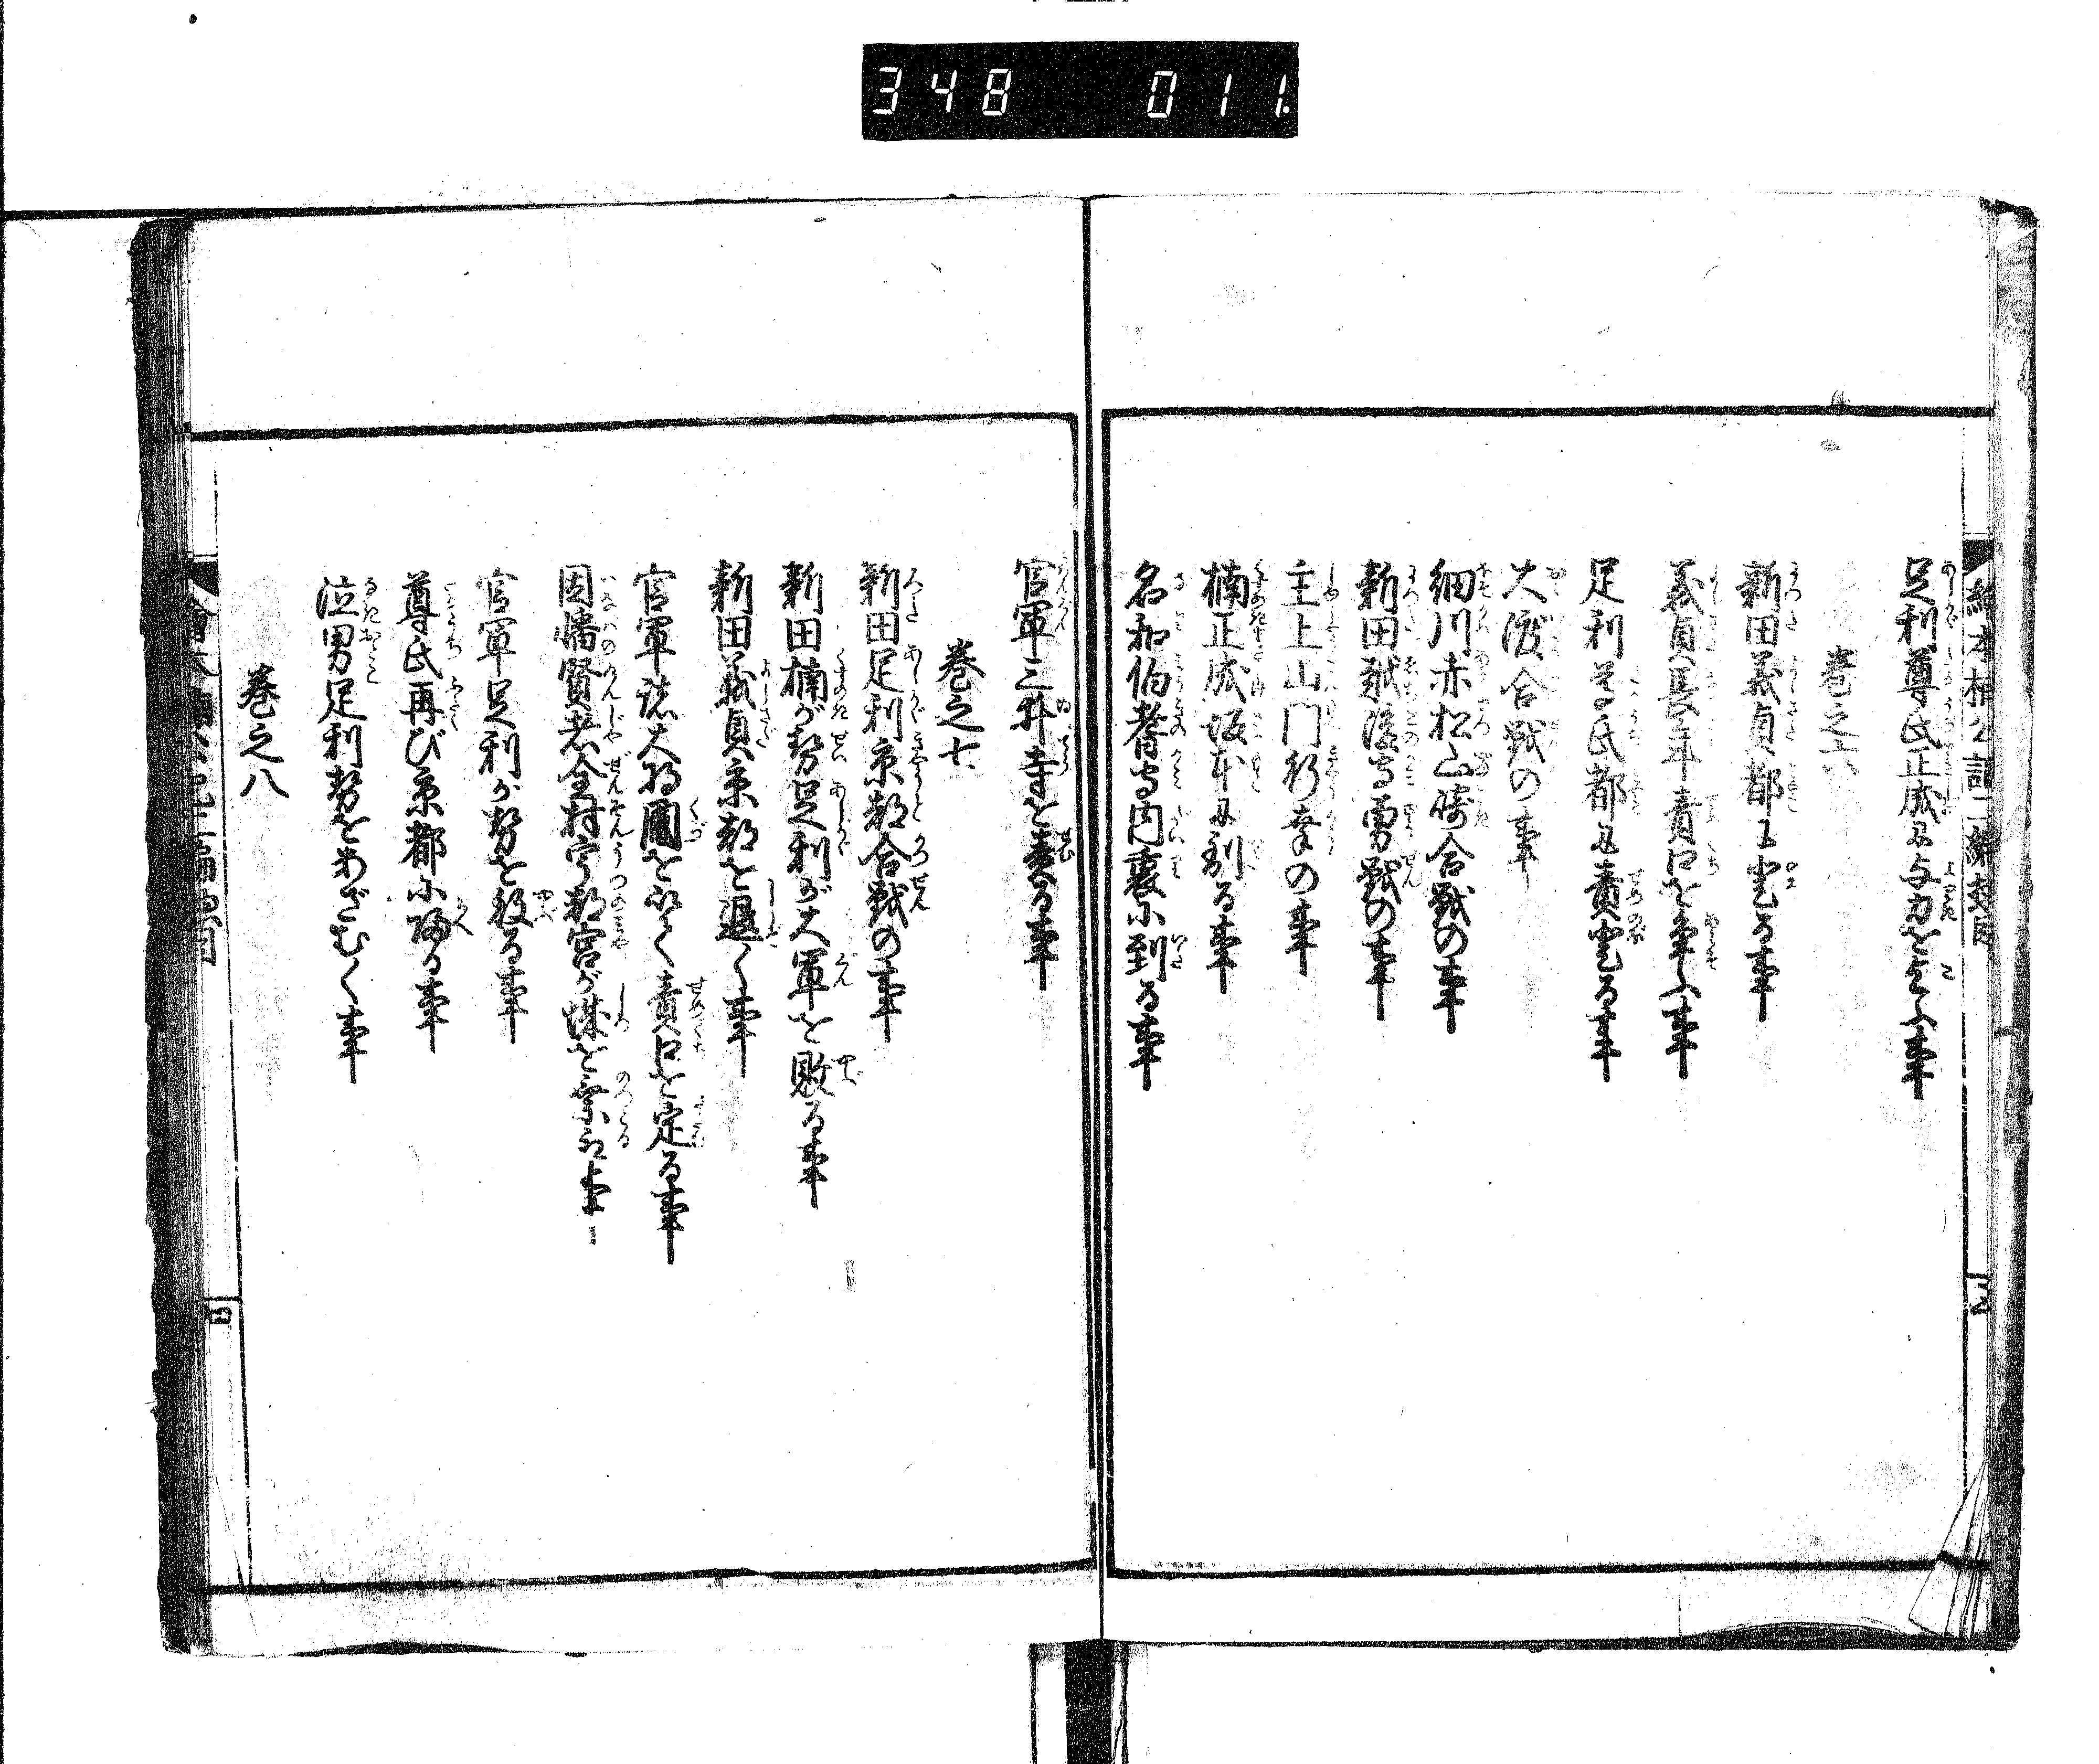 348 011
足利尊氏正成に与力をこふ事
巻之六
新田義貞都に登る事
義貞長年責口を争ふ事
足利尊氏都に責登る事
大渡合戦の事
細川赤松山崎合戦の事
新田越後守勇戦の事
主上山門行幸の事
楠正成坂本に到る事
名和伯耆守内裏に到る事
官軍三井寺を責る事
巻之七
新田足利京都合戦の事
新田楠が勢足利が大軍を敗る事
新田義貞京都を退く事
官軍諸大将圖を以て責口を定る事
因幡賢者全村宇都宮が城を乗取事
官軍足利が勢を破る事
尊氏再び京都に帰る事
泣男足利勢をあざむく事
巻之八
四